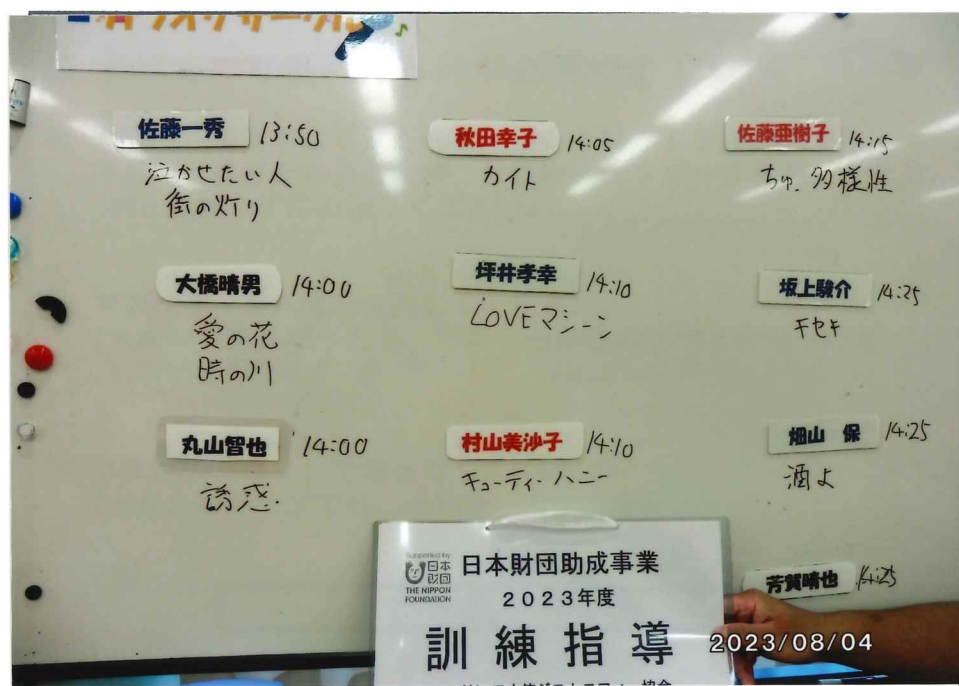 佐藤一秀 13:50
泣かせたい人
街の灯り
大橋晴男 14:00
愛の花
時の川
丸山智也 14:00
誘惑.
秋田幸子 14:05
カイト
坪井孝幸 14:10
LOVEマシーン
村山美沙子 14:10
キューティーハニー
佐藤亜樹子 14:15
ちゅ、多様性
坂上駿介 14:25
キセキ
畑山 保 14:25
酒よ
芳賀晴也 14:25
Supported by
日本
財団
THE NIPPON
FOUNDATION
日本財団助成事業
2023年度
訓練指導
2023/08/04